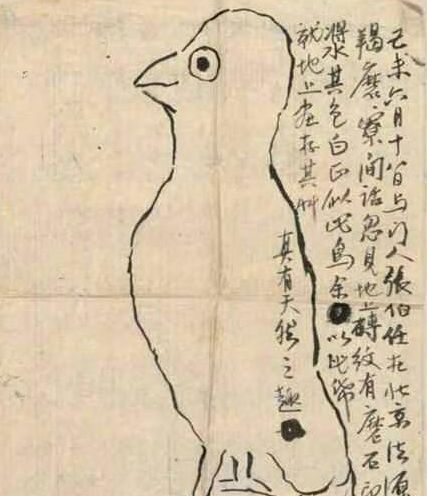 己未六月十八日与门人張伯任在北京法源
羯磨寮閒話忽見地上磚紋有磨石印
漿其色白正似此鳥余以此紙
就地上畫存其草
真有天然之趣